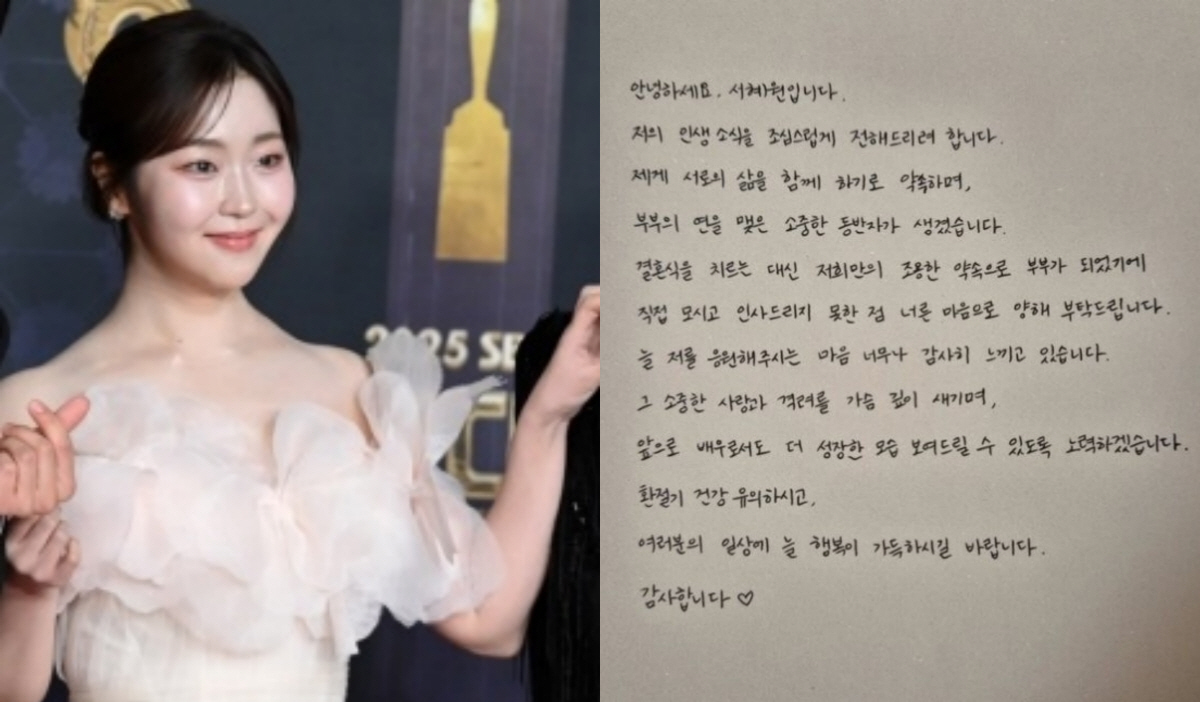 2025 SB
안녕하세요. 서혜원입니다.
저의 인생 소식을 조심스럽게 전해드리려 합니다.
제게 서로의 삶을 함께 하기로 약속하며,
부부의 연을 맺은 소중한 동반자가 생겼습니다.
결혼식을 치르는 대신 저희만의 조용한 약속으로 부부가 되었기에
직접 모시고 인사드리지 못한 점 너른 마음으로 양해 부탁드립니다.
늘 저를 응원해주시는 마음 너무나 감사히 느끼고 있습니다.
그 소중한 사랑과 격려를 가슴 깊이 새기며,
앞으로 배우로서도 더 성장한 모습 보여드릴 수 있도록 노력하겠습니다.
환절기 건강 유의하시고,
여러분의 일상에 늘 행복이 가득하시길 바랍니다.
감사합니다 ♡